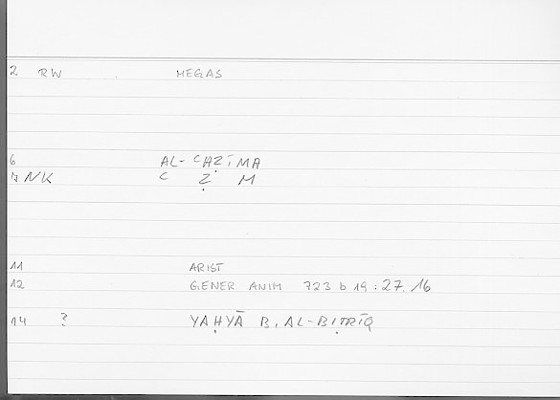 2 RW MEGAS
6 AL-ʿAẒĪMA
7 NK ʿ Ẓ M
11 ARIST
12 GENER ANIM 723 b 19 : 27.16
14 ? YAḤYĀ B. AL-BIṬRĪQ